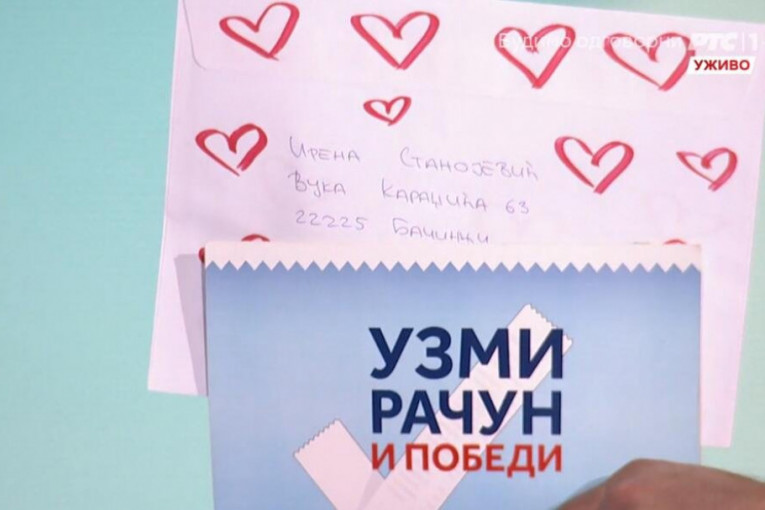 Будимо одговорни РТС 1
УЖИВО
Ирена Станојевић
Вука Караџића 63
22225 Бачинци
УЗМИ
РАЧУН
И ПОБЕДИ